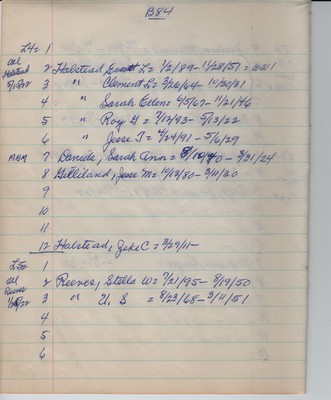 B84
L4= 1
All Halstead 5/13/22 2 Halstead, Everett L= 1/2/89-11/28/51= WW1
3 " Clement L= 3/26/64-10/20/31
4 " Sarah Ellen= 4/5/67-11/21/46
5 " Roy G = 7/12/93-5/13/22
6 " Jesse T= 4/24/91-5/6/29
MHM 7 Daniels, Sarah Ann= 70-3/31/24
8 Gilliland, Jesse M= 10/13/80-3/11/20
9
10
11
12 Halstead, Zeke C= 3/29/11-
L5= 1
All Reeves 2 Reeves, Stella W= 7/21/95-8/19/50
3 " U. S = 8/23/68-3/11/51
4
5
6